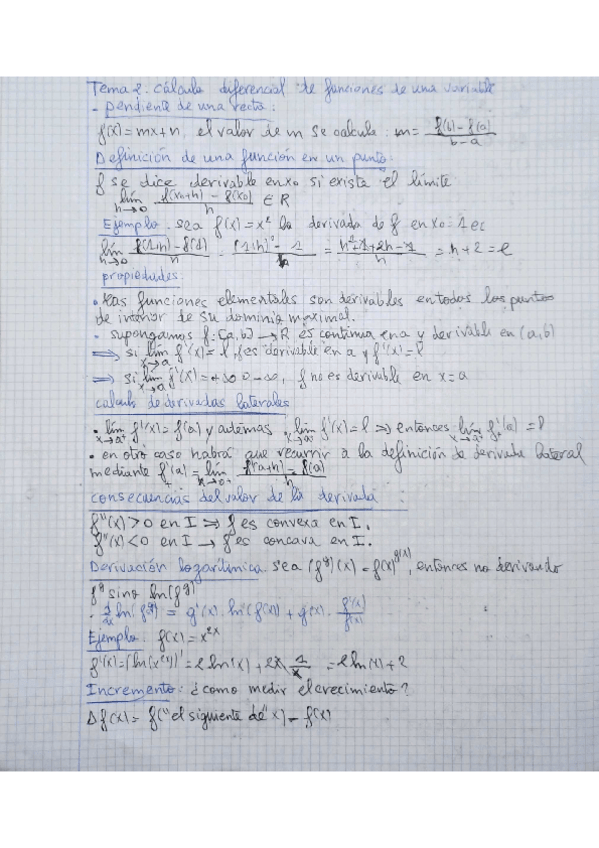 Tema 2: cálculo diferencial de funciones de una variable
- pendiente de una recta:
f(x)=mx+n, el valor de m se calcula: m= f(b)-f(a) / b-a
Definición de una función en un punto:
f se dice derivable en x0 si exista el límite
lim h→0 f(x0+h) - f(x0) / h ∈ R
Ejemplo: sea f(x)=x² la derivada de f en x0=1 es
lim h→0 f(1+h)-f(1) / h = (1+h)² - 1 / h = h²+1+2h-1 / h = h+2=2
propiedades:
• las funciones elementales son derivables en todos los puntos
de interior de su dominio maximal.
• supongamos f: [a,b) → R es continua en a y derivable en (a,b)
⇒ si lim x→a f'(x)= l, f es derivable en a y f'(x)=l
⇒ si lim x→a f'(x)=+∞ o -∞, f no es derivable en x=a
calculo de derivadas laterales
• lim x→a+ f(x)=f(a) y además lim x→a+ f'(x)=l ⇒ entonces lim x→a+ f'(a) = l
• en otro caso habrá que recurrir a la definición de derivada lateral
mediante f'(a)=lim h→0+ f(a+h)-f(a) / h
consecuencias del valor de la derivada :
f''(x)>0 en I ⇒ f es convexa en I.
f''(x)<0 en I → f es concava en I.
Derivación logarítmica sea (f^g)(x)=f(x)^g(x), entonces no derivando
f^g sino ln(f^g)
· d/dx ln(f^g) = g'(x)·ln(f(x)) + g(x)· f'(x)/f(x)
Ejemplo: f(x)=x^2x
f'(x)=(ln(x^2x))'=2ln(x)+2x 1/x =2ln(x)+2
Incremento: ¿como medir el crecimiento?
Δf(x)= f("el siguiente de" x) - f(x)